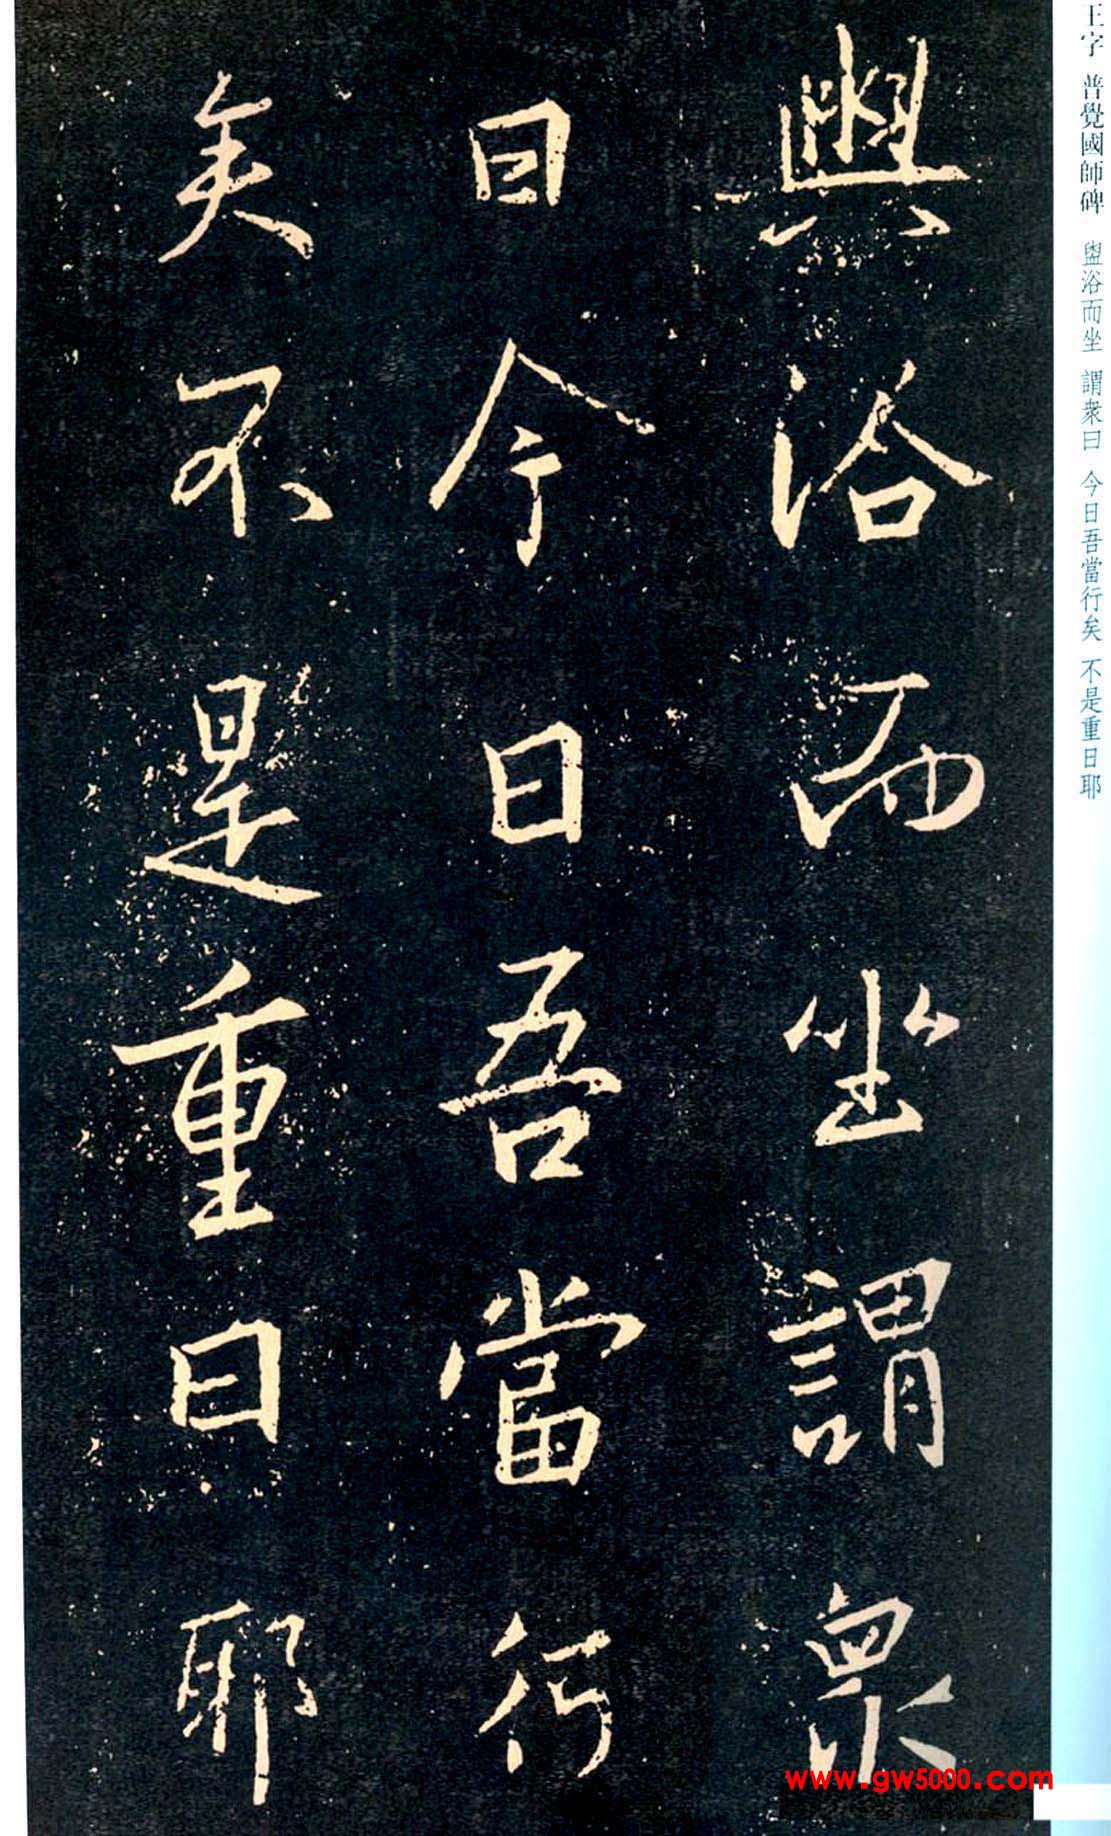 王字 普覺國師碑 盥浴而坐 謂衆曰 今日吾當行矣 不是重日耶
盥浴而坐謂衆
曰今日吾當行
矣不是重日耶
www.gw5000.com